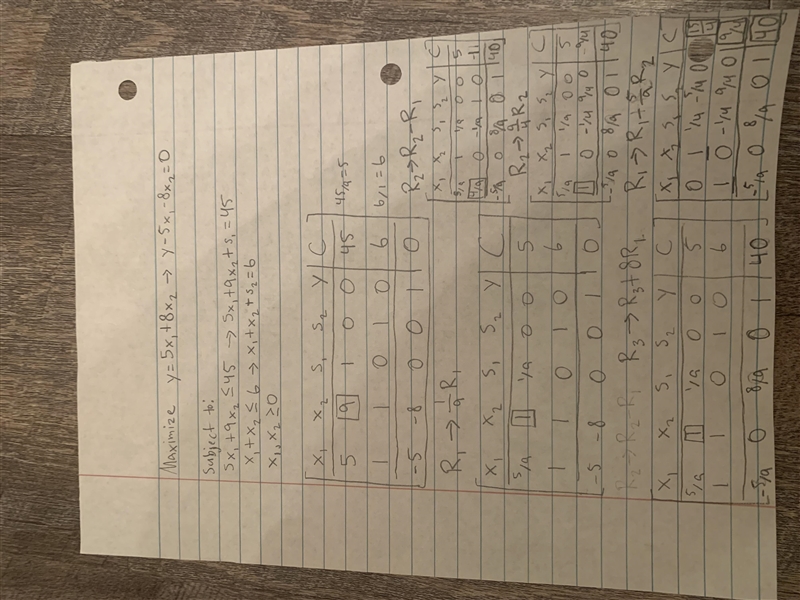 Maximize y=5x₁+8x₂ → y-5x₁-8x₂=0
Subject to:
5x₁+9x₂≤45 → 5x₁+9x₂+s₁=45
x₁+x₂≤6 → x₁+x₂+s₂=6
x₁,x₂≥0
x₁ x₂ s₁ s₂ y C
5 9 1 0 0 45 45/9=5
1 1 0 1 0 6 6/1=6
-5 -8 0 0 1 0
R₁→1/9R₁
x₁ x₂ s₁ s₂ y C
5/9 1 1/9 0 0 5
1 1 0 1 0 6
-5 -8 0 0 1 0
R₂→R₂-R₁ R₃→R₃+8R₁
x₁ x₂ s₁ s₂ y C
5/9 1 1/9 0 0 5
1 1 0 1 0 6
-5/9 0 8/9 0 1 40
R₂→R₂-R₁
x₁ x₂ s₁ s₂ y C
5/9 1 1/9 0 0 5
4/9 0 -1/9 1 0 1
-5/9 0 8/9 0 1 40
R₂→9/4R₂
x₁ x₂ s₁ s₂ y C
5/9 1 1/9 0 0 5
1 0 -1/4 9/4 0 9/4
-5/9 0 8/9 0 1 40
R₁→R₁-5/9R₂
x₁ x₂ s₁ s₂ y C
0 1 1/4 -5/4 0 15/4
1 0 -1/4 9/4 0 9/4
-5/9 0 8/9 0 1 40